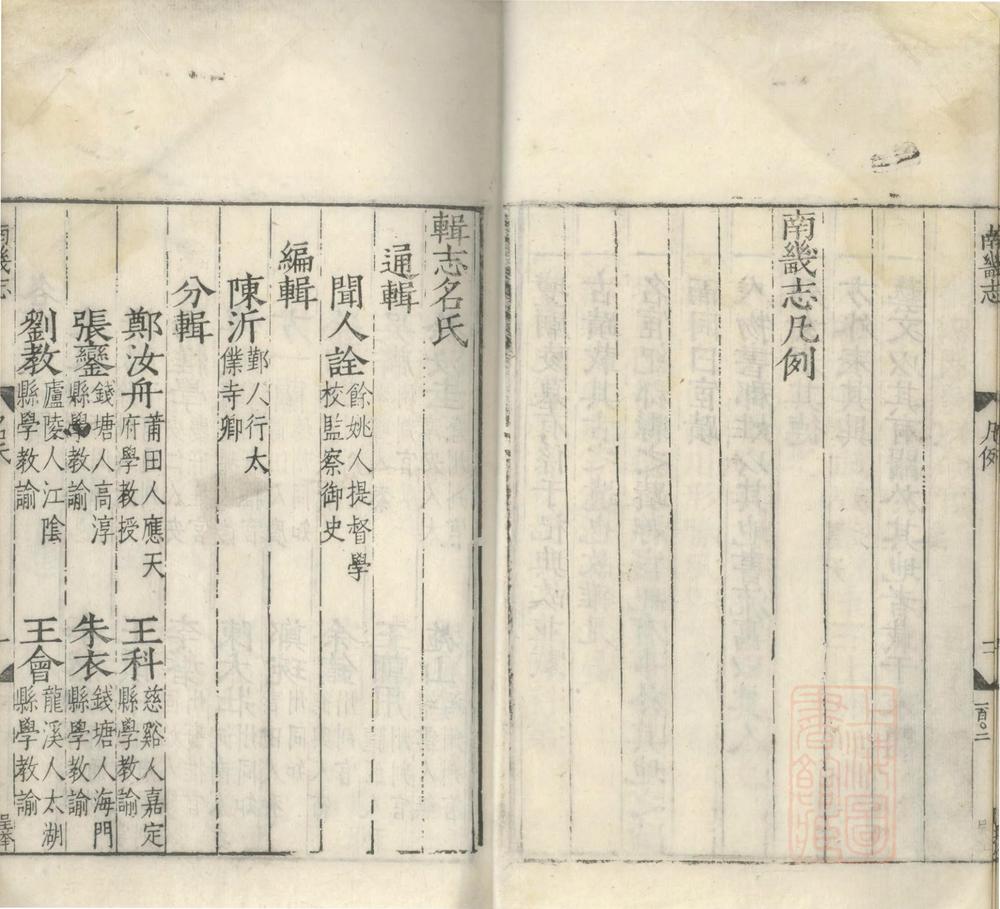 南畿志
凡例
二
一百〇二
南畿志凡例
輯志名氏
通輯
聞人詮餘姚人提督學
校監察御史
編輯
陳沂鄞人行太
僕寺卿
分輯
鄭汝舟莆田人應天
府學教授
王科慈谿人嘉定
縣學教諭
張鑾錢塘人高淳
縣學教諭
朱衣錢塘人海門
縣學教諭
劉教廬陵人江陰
縣學教諭
王會龍溪人太湖
縣學教諭
南畿志
名氏
一